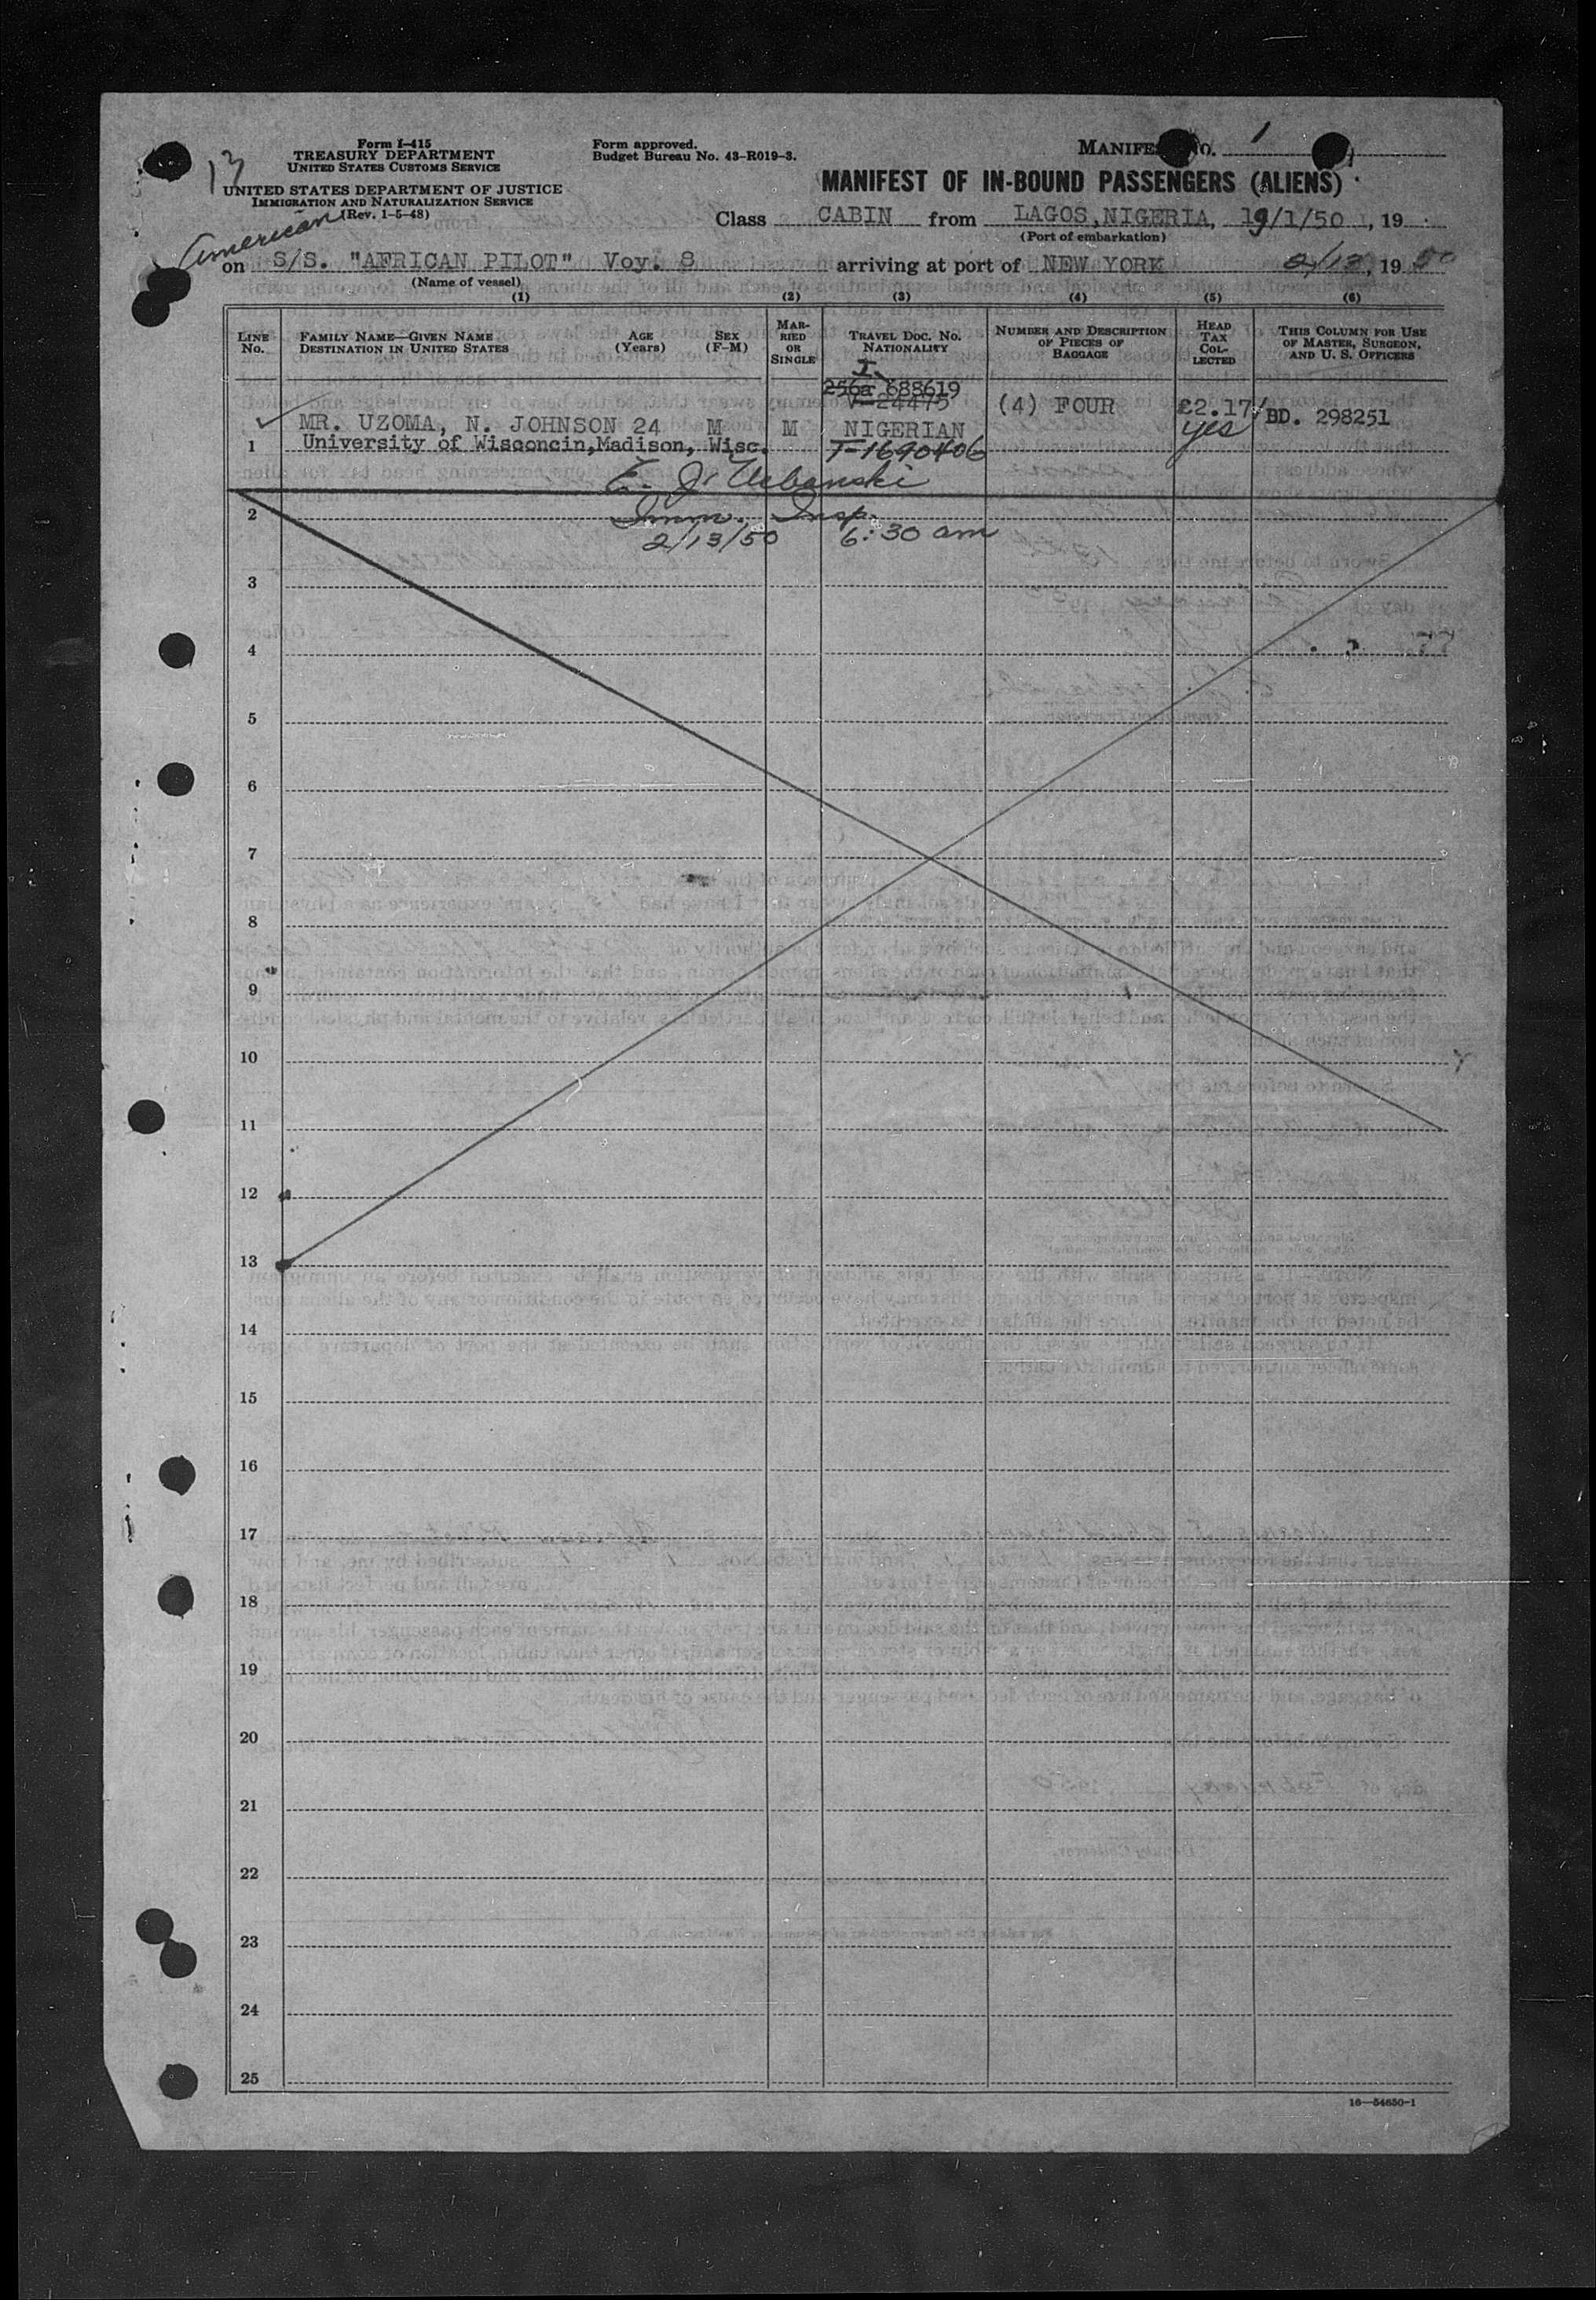 13
Form I-415
TREASURY DEPARTMENT
UNITED STATES CUSTOMS SERVICE
UNITED STATES DEPARTMENT OF JUSTICE
IMMIGRATION AND NATURALIZATION SERVICE
(Rev. 1-5-48)
Form approved.
Budget Bureau No. 43-R019-3.
MANIFEST NO. 1
MANIFEST OF IN-BOUND PASSENGERS (ALIENS)
Class CABIN from LAGOS, NIGERIA, 19/1/50, 19
(Port of embarkation)
American
on S/S. "AFRICAN PILOT" Voy. 8 arriving at port of NEW YORK 2/13, 19 50
(Name of vessel)
(1) (2) (3) (4) (5) (6)
LINE No.
FAMILY NAME—GIVEN NAME
DESTINATION IN UNITED STATES
AGE (Years)
SEX (F-M)
MARRIED OR SINGLE
TRAVEL DOC. NO.
NATIONALITY
NUMBER AND DESCRIPTION OF PIECES OF BAGGAGE
HEAD TAX COLLECTED
THIS COLUMN FOR USE OF MASTER, SURGEON, AND U. S. OFFICERS
I.
256a 688619
V-24475
MR. UZOMA, N. JOHNSON 24 M M NIGERIAN (4) FOUR £2.17/ BD. 298251
yes
1 University of Wisconcin, Madison, Wisc. T-1690406
E. J. Urbanski
2 Imm. Insp.
2/13/50 6:30 am
3
4
5
6
7
8
9
10
11
12
13
14
15
16
17
18
19
20
21
22
23
24
25
16—54650-1